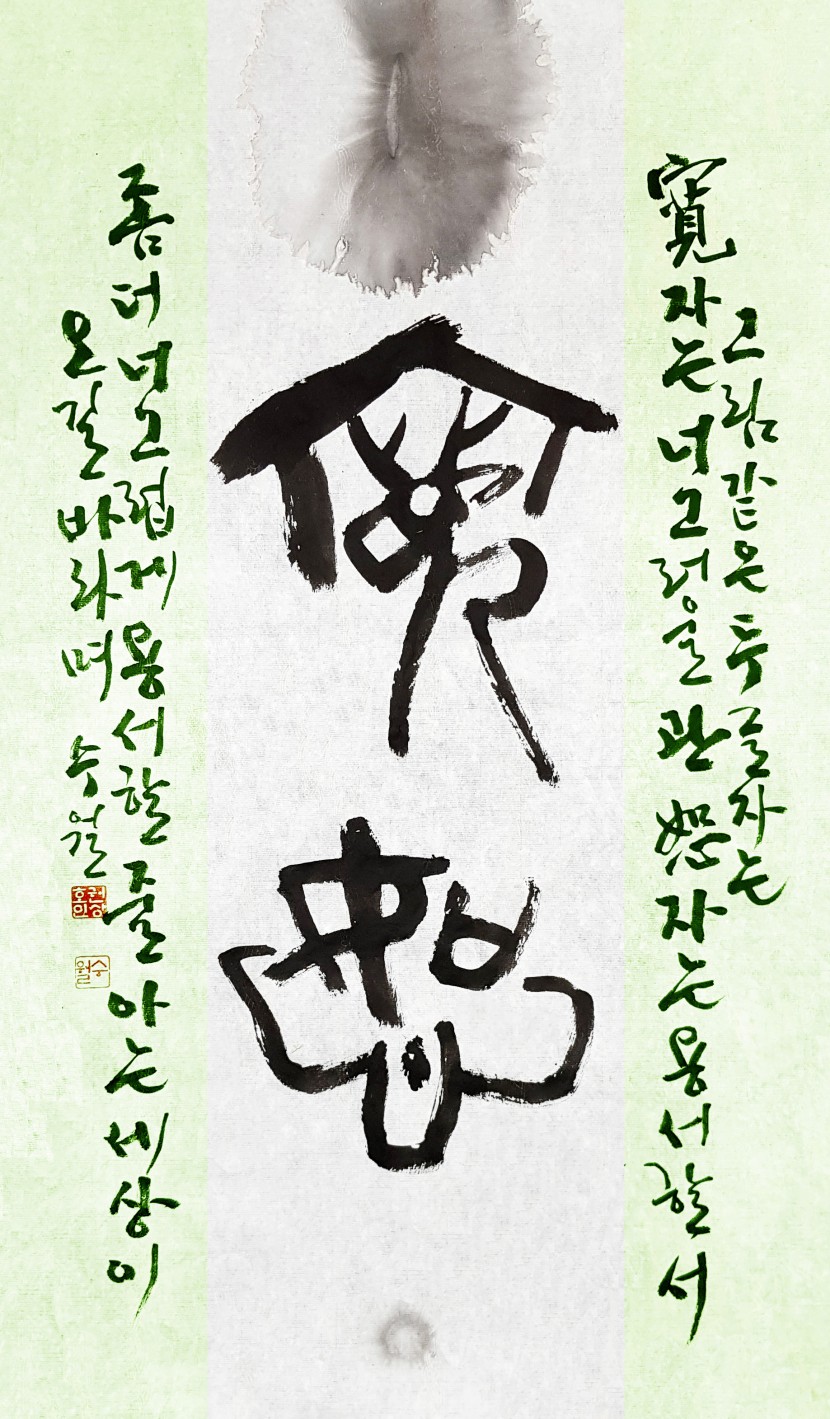 그림같은 두 글자는
寬자는 너그러울 관 恕자는 용서할 서
寬恕
좀 더 너그럽게 용서할 줄 아는 세상이
오길 바라며 수월
권상호인
수월